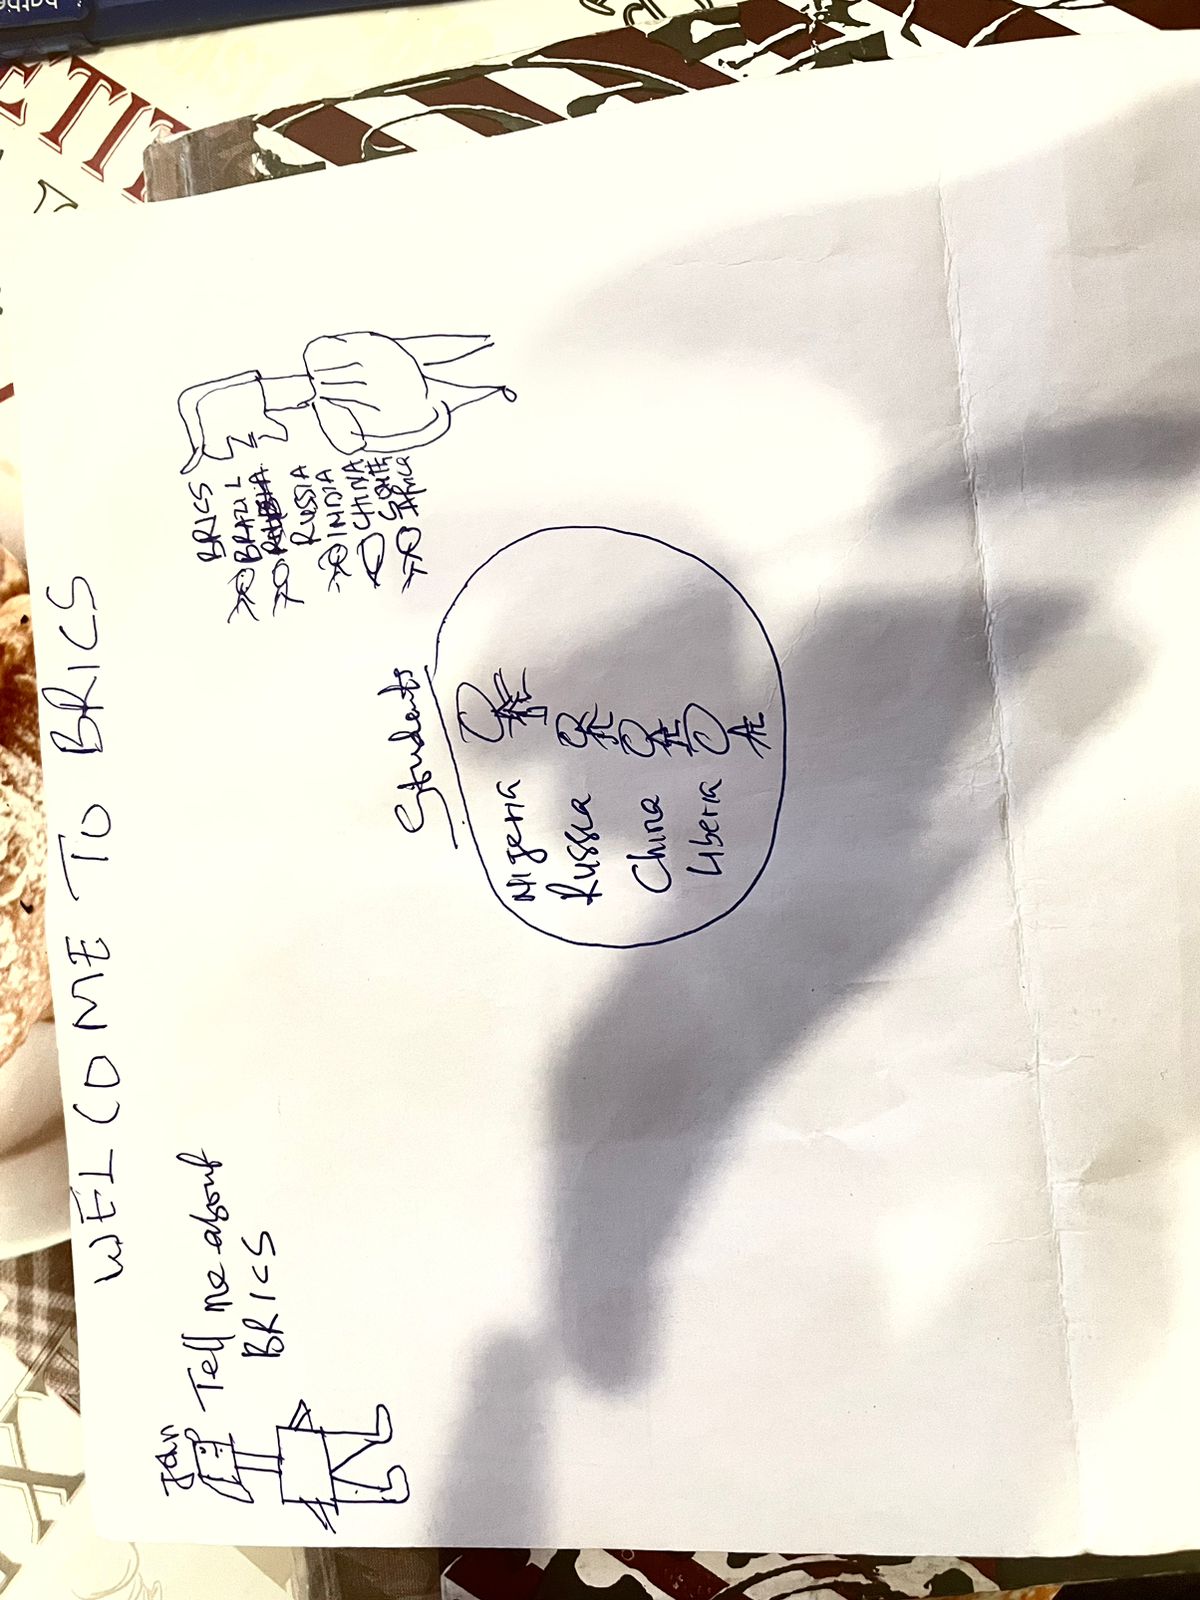 WELCOME TO BRICS
John
Tell me about
BRICS
BRICS
BRAZIL
RUSSIA
INDIA
CHINA
South
Africa
Students
Nigeria
Russia
China
Liberia
ETIT